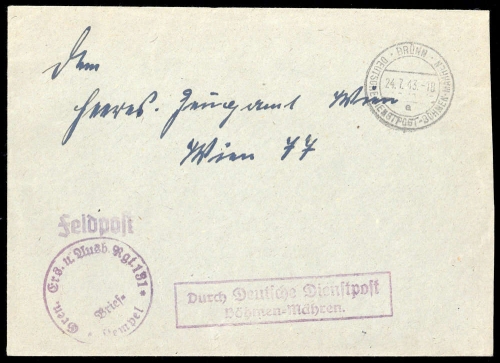 Dem
BRÜNN
DEUTSCHE DIENSTPOST BÖHMEN-MÄHREN
24.7.43.-10
a
Heeres. Zeugamt Wien
Wien 77
Feldpost
Gren. Ers. u. Ausb. Rgt. 131
Brief-
stempel
Durch Deutsche Dienstpost
Böhmen-Mähren.